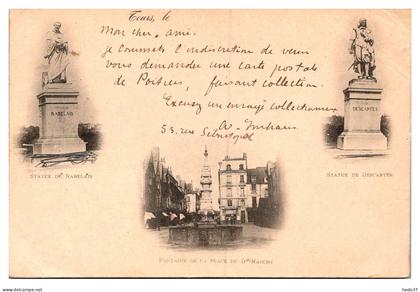 Tours, le
Mon cher, ami.
je commets l'indiscretion de venir
vous demander une carte postale
de Poitiers, faisant collection.
Excusez un enragé collectionneur
53, rue
RABELAIS
DESCARTES
STATUE DE RABELAIS
STATUE DE DESCARTES
FONTAINE DE LA PLACE DU GD MARCHÉ
www.hedo37.com